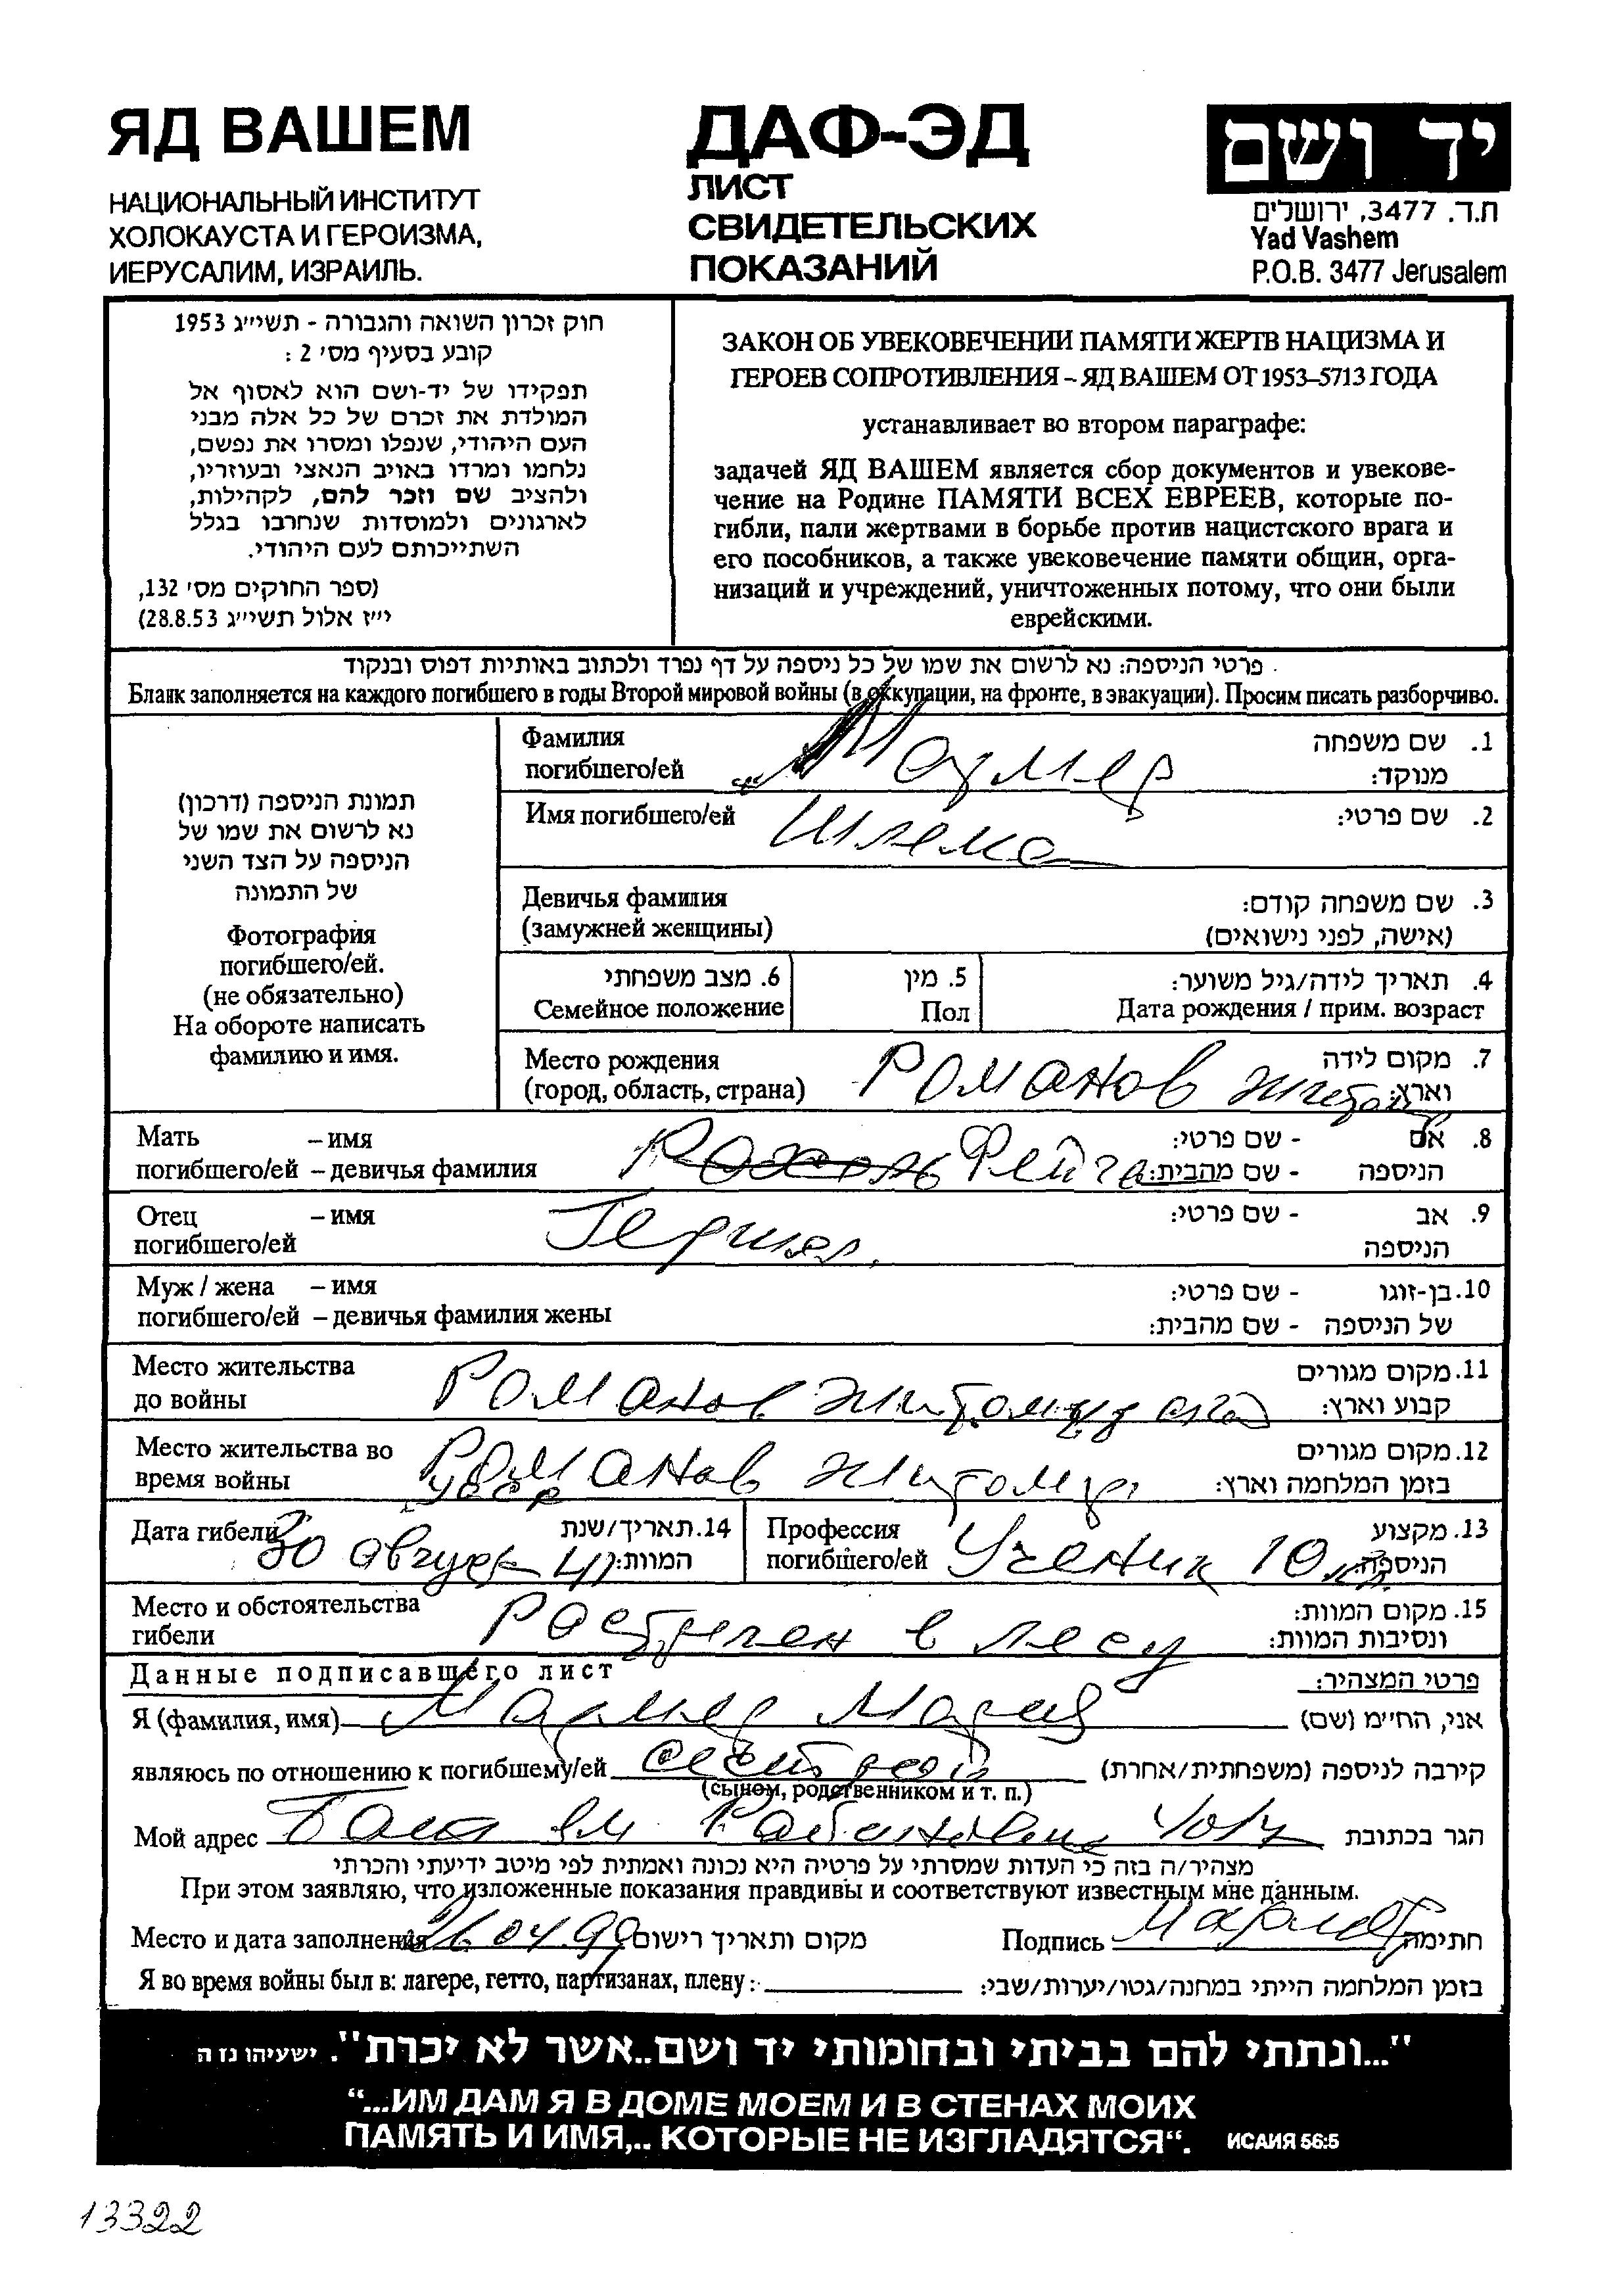 ЯД ВАШЕМ
НАЦИОНАЛЬНЫЙ ИНСТИТУТ
ХОЛОКАУСТА И ГЕРОИЗМА,
ИЕРУСАЛИМ, ИЗРАИЛЬ.
ДАФ-ЭД
ЛИСТ
СВИДЕТЕЛЬСКИХ
ПОКАЗАНИЙ
יד ושם
ת.ד. 3477, ירושלים
Yad Vashem
P.O.B. 3477 Jerusalem
חוק זכרון השואה והגבורה - תשי״ג 1953
קובע בסעיף מס׳ 2 :
תפקידו של יד-ושם הוא לאסוף אל
המולדת את זכרם של כל אלה מבני
העם היהודי, שנפלו ומסרו את נפשם,
נלחמו ומרדו באויב הנאצי ובעוזריו,
ולהציב שם וזכר להם, לקהילות,
לארגונים ולמוסדות שנחרבו בגלל
השתייכותם לעם היהודי.
(ספר החוקים מס׳ 132,
י״ז אלול תשי״ג 28.8.53)
ЗАКОН ОБ УВЕКОВЕЧЕНИИ ПАМЯТИ ЖЕРТВ НАЦИЗМА И
ГЕРОЕВ СОПРОТИВЛЕНИЯ – ЯД ВАШЕМ ОТ 1953–5713 ГОДА
устанавливает во втором параграфе:
задачей ЯД ВАШЕМ является сбор документов и увекове-
чение на Родине ПАМЯТИ ВСЕХ ЕВРЕЕВ, которые по-
гибли, пали жертвами в борьбе против нацистского врага и
его пособников, а также увековечение памяти общин, орга-
низаций и учреждений, уничтоженных потому, что они были
еврейскими.
פרטי הניספה: נא לרשום את שמו של כל ניספה על דף נפרד ולכתוב באותיות דפוס ובנקוד
Бланк заполняется на каждого погибшего в годы Второй мировой войны (в оккупации, на фронте, в эвакуации). Просим писать разборчиво.
תמונת הניספה (דרכון)
נא לרשום את שמו של
הניספה על הצד השני
של התמונה
Фотография
погибшего/ей.
(не обязательно)
На обороте написать
фамилию и имя.
Фамилия
погибшего/ей
1. שם משפחה
מנוקד:
Имя погибшего/ей Шлема 2. שם פרטי:
Девичья фамилия
(замужней женщины)
3. שם משפחה קודם:
(אישה, לפני נישואים)
6. מצב משפחתי
Семейное положение
5. מין
Пол
4. תאריך לידה/גיל משוער:
Дата рождения / прим. возраст
Место рождения
(город, область, страна) Романов
7. מקום לידה
וארץ:
Мать – имя
погибшего/ей – девичья фамилия
Рохель Фейга
8. אם - שם פרטי:
הניספה - שם מהבית:
Отец – имя
погибшего/ей
Гершел.
9. אב - שם פרטי:
הניספה
Муж / жена – имя
погибшего/ей – девичья фамилия жены
10. בן-זוגו - שם פרטי:
של הניספה - שם מהבית:
Место жительства
до войны
Романов
11. מקום מגורים
קבוע וארץ:
Место жительства во
время войны
Романов Житомир
12. מקום מגורים
בזמן המלחמה וארץ:
Дата гибели
30 август 41
14. תאריך/שנת
המוות:
Профессия
погибшего/ей
Ученик 10 кл
13. מקצוע
הניספה:
Место и обстоятельства
гибели
Растрелен в лесу
15. מקום המוות:
ונסיבות המוות:
Данные подписавшего лист
פרטי המצהיר:
Я (фамилия, имя) אני, החי״מ (שם)
являюсь по отношению к погибшему/ей сестрой קירבה לניספה (משפחתית/אחרת)
(сыном, родственником и т. п.)
Мой адрес הגר בכתובת
מצהיר/ה בזה כי העדות שמסרתי על פרטיה היא נכונה ואמתית לפי מיטב ידיעתי והכרתי
При этом заявляю, что изложенные показания правдивы и соответствуют известным мне данным.
Место и дата заполнения 26.04.99 מקום ותאריך רישום
Подпись חתימה
Я во время войны был в: лагере, гетто, партизанах, плену : בזמן המלחמה הייתי במחנה/גטו/יערות/שבי:
"...ונתתי להם בביתי ובחומותי יד ושם..אשר לא יכרת". ישעיהו נז ה
“...ИМ ДАМ Я В ДОМЕ МОЕМ И В СТЕНАХ МОИХ
ПАМЯТЬ И ИМЯ,.. КОТОРЫЕ НЕ ИЗГЛАДЯТСЯ“. ИСАИЯ 56:5
13322